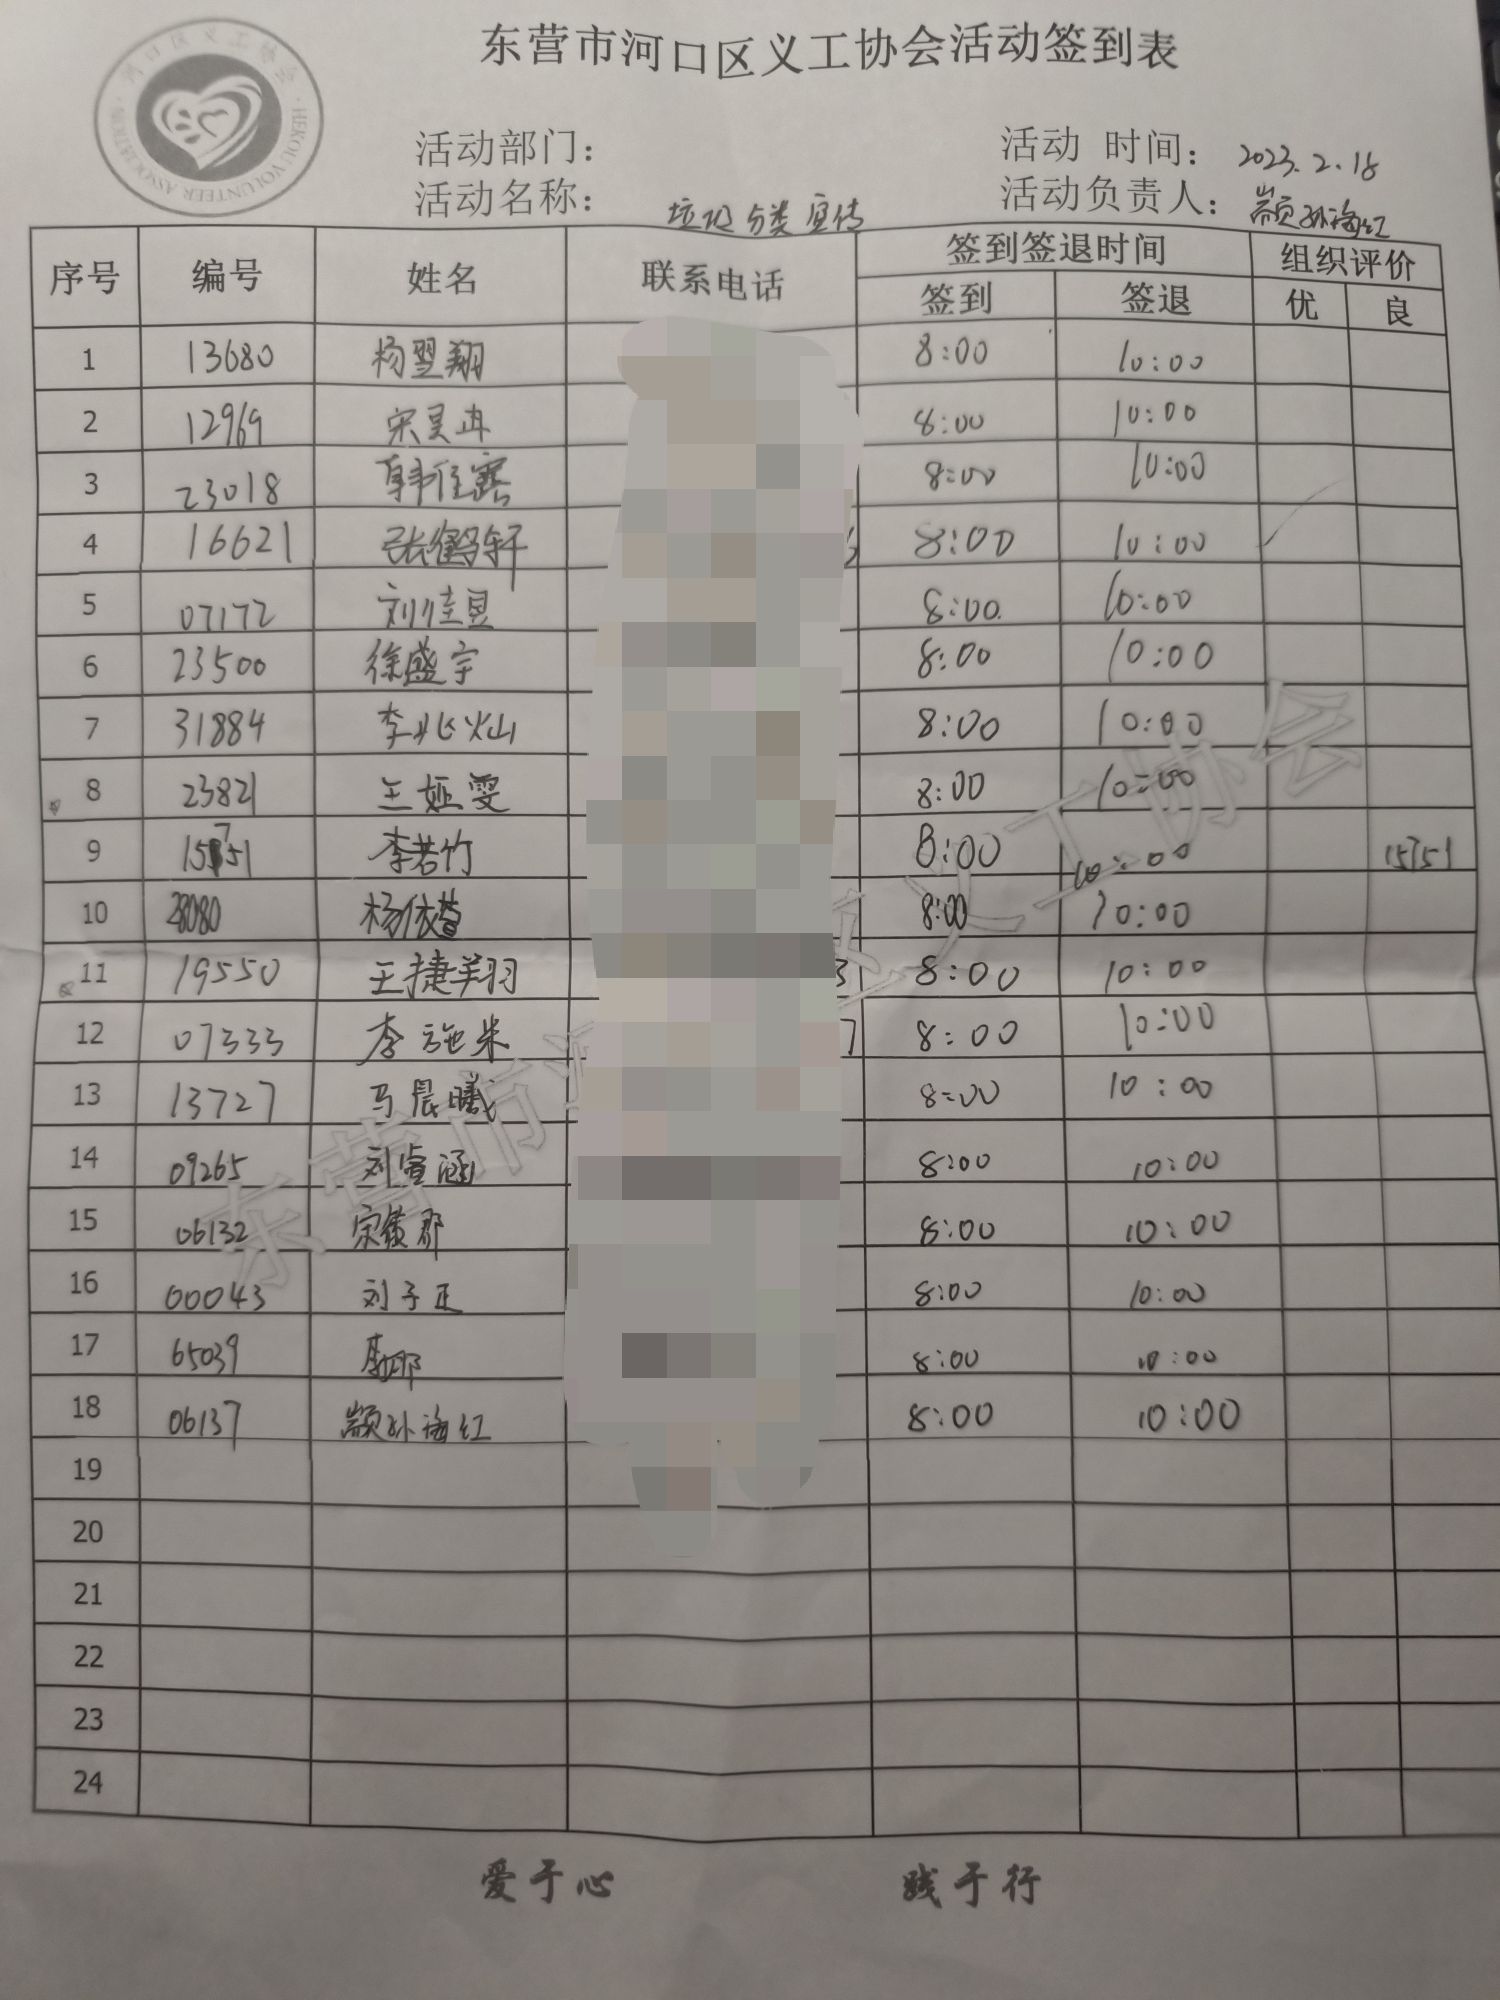 东营市河口区义工协会活动签到表
河口区义工协会
HEKOU VOLUNTEER ASSOCIATION
活动部门：
活动 时间：2023.2.18
活动名称：垃圾分类宣传
活动负责人：颛孙海红
序号 编号 姓名 联系电话 签到签退时间 组织评价
签到 签退 优 良
1 13680 杨翌翔 8:00 10:00
2 12969 宋昊冉 8:00 10:00
3 23018 韩佳露 8:00 10:00
4 16621 张鹤轩 8:00 10:00
5 07172 刘佳昱 8:00 10:00
6 23500 徐盛宇 8:00 10:00
7 31884 李兆灿 8:00 10:00
8 23821 王娅雯 8:00 10:00
9 15751 李若竹 8:00 10:00 15751
10 28080 杨依萱 8:00 10:00
11 19550 王捷羽 3 8:00 10:00
12 07333 李施米 7 8:00 10:00
13 13727 马晨曦 8:00 10:00
14 09265 刘萱涵 8:00 10:00
15 06132 8:00 10:00
16 00043 刘子正 8:00 10:00
17 65039 8:00 10:00
18 06137 颛孙海红 8:00 10:00
19
20
21
22
23
24
东营市河口区义工协会
爱于心 践于行